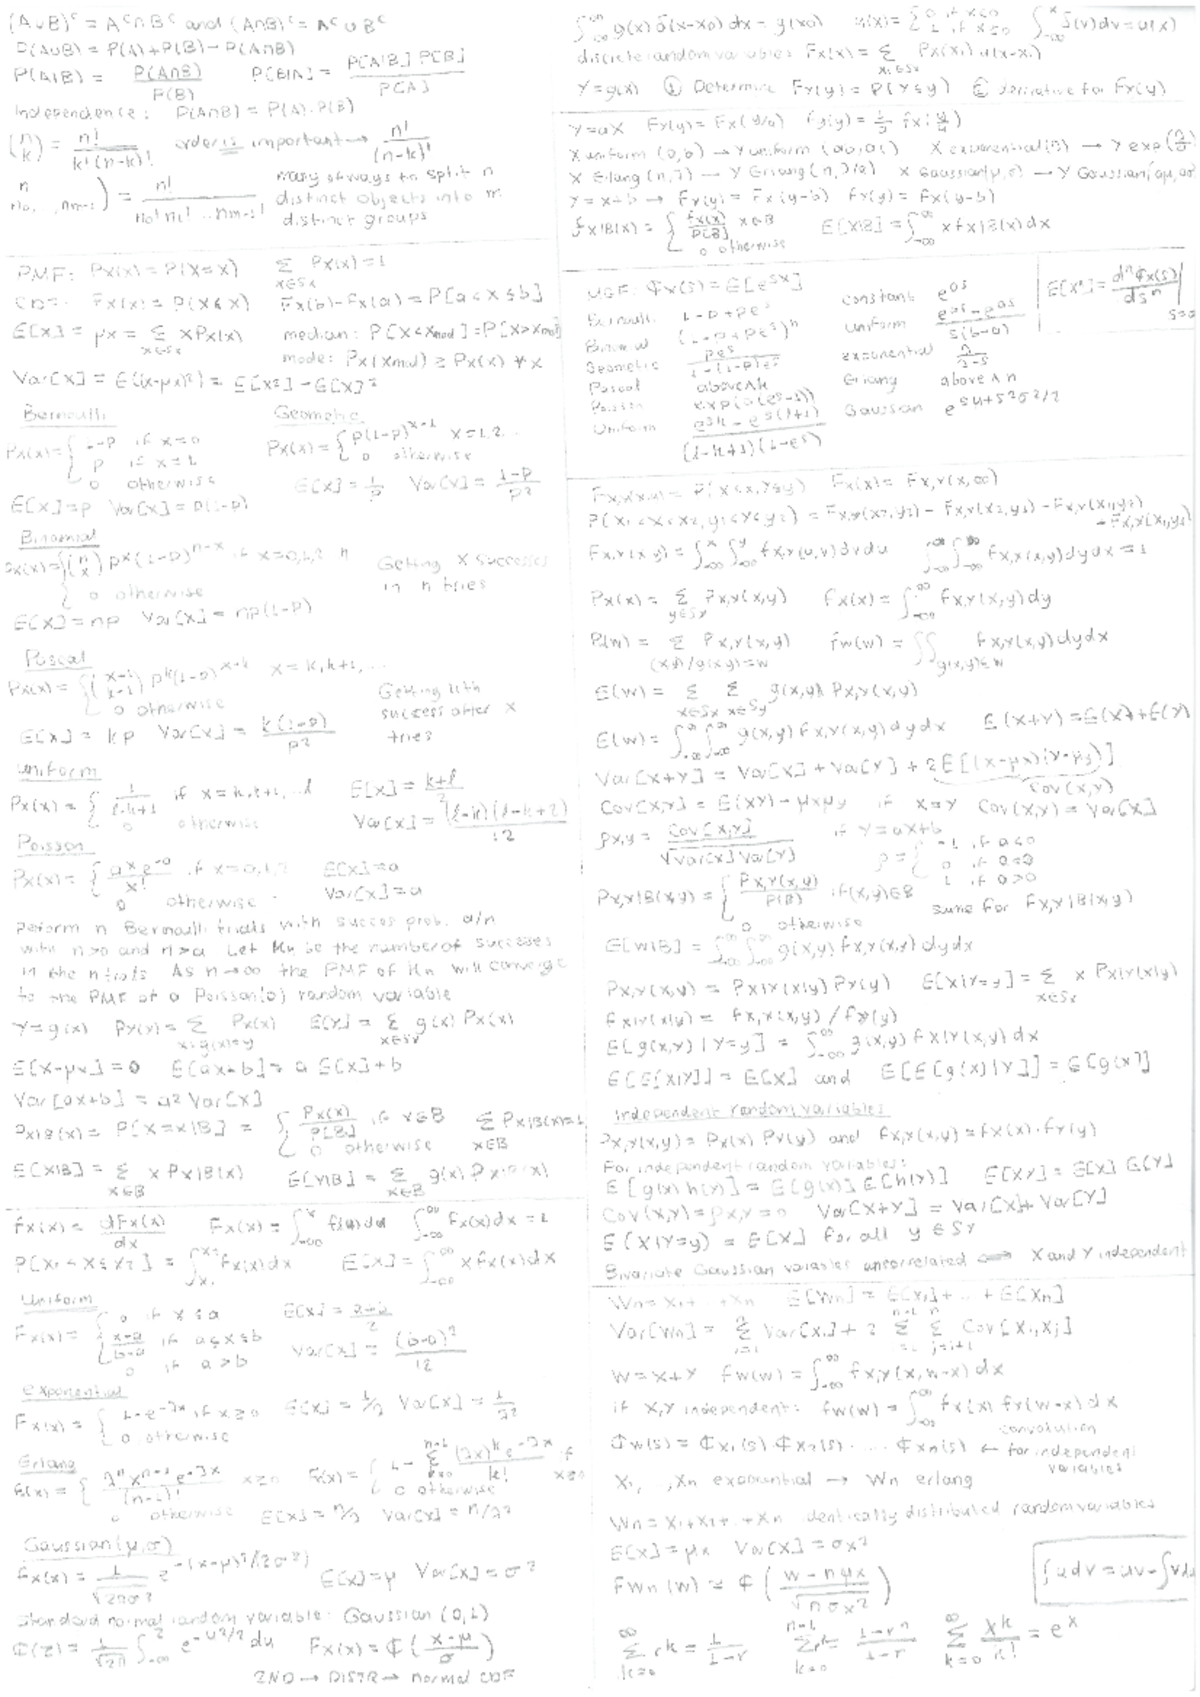 (A∪B)ᶜ = Aᶜ∩Bᶜ and (A∩B)ᶜ = Aᶜ∪Bᶜ
P(A∪B) = P(A)+P(B)-P(A∩B)
P(A|B) = P(A∩B)/P(B) P[B|A] = P[A|B] P[B]/P[A]
Independence: P(A∩B) = P(A)·P(B)
(n k) = n!/k!(n-k)! order is important → n!/(n-k)!
= n!/n0! n1! ... nm-1! many of ways to split n
distinct objects into m
distinct groups
PMF: Px(x) = P(X=x) Σ x∈Sx Px(x)=1
Fx(x) = P(X≤x) Fx(b)-Fx(a) = P[a<X≤b]
E[X] = μx = Σ x∈Sx xPx(x) median: P[X<Xmed]=P[X>Xmed]
mode: Px(Xmod) ≥ Px(x) ∀x
Var[X] = E[(x-μx)²] = E[X²]-E[X]²
Bernoulli Geometric
Px(x)={ 1-p if x=0 Px(x)={ p(1-p)^x-1 x=1,2...
p if x=1 0 otherwise
0 otherwise E[X]=1/p Var[X]=(1-p)/p²
E[X]=p Var[X]=p(1-p)
Binomial
Px(x)={ (n x) p^x(1-p)^n-x if x=0,1,2 n Getting x successes
0 otherwise in n tries
E[X]=np Var[X]=np(1-p)
Pascal
Px(x)={ (x-1 k-1) p^k(1-p)^x-k x=k,k+1,... Getting kth
0 otherwise success after x
E[X]=kp Var[X]=k(1-p)/p² tries
Uniform
Px(x)={ 1/l-k+1 if x=k,k+1,...l E[X]=(k+l)/2
0 otherwise Var[X]=(l-k)(l-k+2)/12
Poisson
Px(x)={ a^x e^-a/x! if x=0,1,2 E[X]=a
0 otherwise Var[X]=a
Perform n Bernoulli trials with succes prob. a/n
with n>0 and n>a Let Kn be the number of successes
in the n trials As n→∞ the PMF of Kn will converge
to the PMF of a Poisson(a) random variable
Y=g(x) Py(y)=Σ x:g(x)=y Px(x) E[Y]=Σ x∈Sx g(x) Px(x)
E[X-μx]=0 E[ax+b]=a E[X]+b
Var[ax+b]=a² Var[X]
Px|B(x)=P[X=x|B]={ Px(x)/P[B] if x∈B Σ x∈B Px|B(x)=1
0 otherwise
E[X|B]=Σ x∈B x Px|B(x) E[Y|B]=Σ x∈B g(x) Px|B(x)
fx(x)=dFx(x)/dx Fx(x)=∫-∞^x f(u)du ∫-∞^∞ fx(x)dx=1
P[X1<X≤X2]=∫x1^x2 fx(x)dx E[X]=∫-∞^∞ xfx(x)dx
Uniform
Fx(x)={ 0 if x≤a
(x-a)/(b-a) if a≤x≤b Var[X]=(b-a)²/12
exponential
Fx(x)={ 1-e^-λx if x≥0 E[X]=1/λ Var[X]=1/λ²
0 otherwise
Erlang
fx(x)={ λ^n x^n-1 e^-λx/(n-1)! x≥0 Fx(x)={ 1-Σ k=0^n-1 (λx)^k e^-λx/k! if x≥0
0 otherwise 0 otherwise
E[X]=n/λ Var[X]=n/λ²
Gaussian(μ,σ)
fx(x)=1/√2πσ² e^-(x-μ)²/(2σ²) E[X]=μ Var[X]=σ²
Standard normal random variable: Gaussian (0,1)
Φ(z)=1/√2π ∫-∞^z e^-u²/2 du Fx(x)=Φ((x-μ)/σ)
2ND → DISTR → normal CDF
∫-∞^∞ g(x) δ(x-x0) dx = g(x0) u(x)={ 0 if x<0 ∫-∞^x δ(v)dv=u(x)
discrete random variables Fx(x)=Σ xi∈Sx Px(xi) u(x-xi)
Y=g(x) ① Determine Fy(y)=P(Y≤y) ② derivative for Fy(y)
Y=aX Fy(y)=Fx(y/a) fy(y)=1/a fx(y/a)
X exponential(λ) → Y exp(λ/a)
X Erlang(n,λ) → Y Erlang(n,λ/a) X Gaussian(μ,σ) → Y Gaussian(aμ,aσ)
Y=x+b → Fy(y)=Fx(y-b) fy(y)=fx(y-b)
fx|B(x)={ fx(x)/P[B] x∈B E[X|B]=∫-∞^∞ xfx|B(x)dx
0 otherwise
MGF: Φx(s)=E[e^sx] constant e^as E[X^n]=d^nΦx(s)/ds^n | s=0
Bernoulli 1-p+pe^s uniform (e^bs-e^as)/s(b-a)
Binomial (1-p+pe^s)^n exponential λ/(λ-s)
Geometric pe^s/1-(1-p)e^s Erlang above ^ n
Pascal above^k Gaussian e^sμ+s²σ²/2
Poisson exp(a(e^s-1))
Uniform e^sk-e^s(l+1)/(l-k+1)(1-e^s)
Fx,y(x,y)=P[X≤x,Y≤y] Fx(x)=Fx,y(x,∞)
P[X1<X<X2,y1<Y≤y2]=Fx,y(x2,y2)-Fx,y(x2,y1)-Fx,y(x1,y2)
+Fx,y(x1,y1)
Fx,y(x,y)=∫-∞^x∫-∞^y fx,y(u,v)dvdu ∫-∞^∞∫-∞^∞ fx,y(x,y)dydx=1
Px(x)=Σ y∈Sy Px,y(x,y) fx(x)=∫-∞^∞ fx,y(x,y)dy
P(w)=Σ (x,y)/g(x,y)=w Px,y(x,y) fw(w)=∫∫ g(x,y)∈w fx,y(x,y)dydx
E(W)=Σ x∈Sx Σ x∈Sy g(x,y) Px,y(x,y)
E(W)=∫-∞^∞∫-∞^∞ g(x,y)fx,y(x,y)dydx E(X+Y)=E(X)+E(Y)
Var[X+Y]=Var[X]+Var[Y]+2E[(x-μx)(y-μy)]
Cov(x,y)
Cov[X,Y]=E(XY)-μxμy if X=Y Cov(X,Y)=Var[X]
ρx,y=Cov[x,y]/√Var[X]Var[Y] if Y=aX+b
ρ={ -1 if a<0
0 if a=0
1 if a>0
Px,y|B(x,y)={ Px,y(x,y)/P(B) if(x,y)∈B
0 otherwise same for fx,y|B(x,y)
E[W|B]=∫-∞^∞∫-∞^∞ g(x,y)fx,y(x,y)dydx
Px,y(x,y)=Px|y(x|y)Py(y) E[X|Y=y]=Σ x∈Sx x Px|y(x|y)
fx|y(x|y)=fx,y(x,y)/fy(y)
E[g(x,y)|Y=y]=∫-∞^∞ g(x,y)fx|y(x,y)dx
E[E[X|Y]]=E[X] and E[E[g(x)|Y]]=E[g(x)]
Independent random variables
Px,y(x,y)=Px(x) Py(y) and fx,y(x,y)=fx(x)·fy(y)
For independent random variables:
E[g(x)h(y)]=E[g(x)]E[h(y)] E[XY]=E[X]E[Y]
Cov(x,y)=ρx,y=0 Var[X+Y]=Var[X]+Var[Y]
E(X|Y=y)=E[X] for all y∈Sy
Bivariate Gaussian variables uncorrelated ⟺ X and Y independent
Wn=X1+...+Xn E[Wn]=E[X1]+...+E[Xn]
Var[Wn]=Σ i=1^n Var[Xi]+2 Σ i=1^n-1 Σ j=i+1^n Cov[Xi,Xj]
W=X+Y fw(w)=∫-∞^∞ fx,y(x,w-x)dx
if X,Y independent: fw(w)=∫-∞^∞ fx(x) fy(w-x)dx
convolution
Φw(s)=Φx1(s)Φx2(s)...Φxn(s) ← for independent
variables
X1, ,Xn exponential → Wn erlang
Wn=X1+X2+...+Xn identically distributed random variables
E[X]=μx Var[X]=σx²
FWn(w)≈Φ((w-nμx)/√nσx²) ∫udv=uv-∫vdu
Σ k=0^∞ r^k=1/(1-r) Σ k=0^n-1 r^k (1-r^n)/(1-r) Σ k=0^∞ x^k/k!=e^x